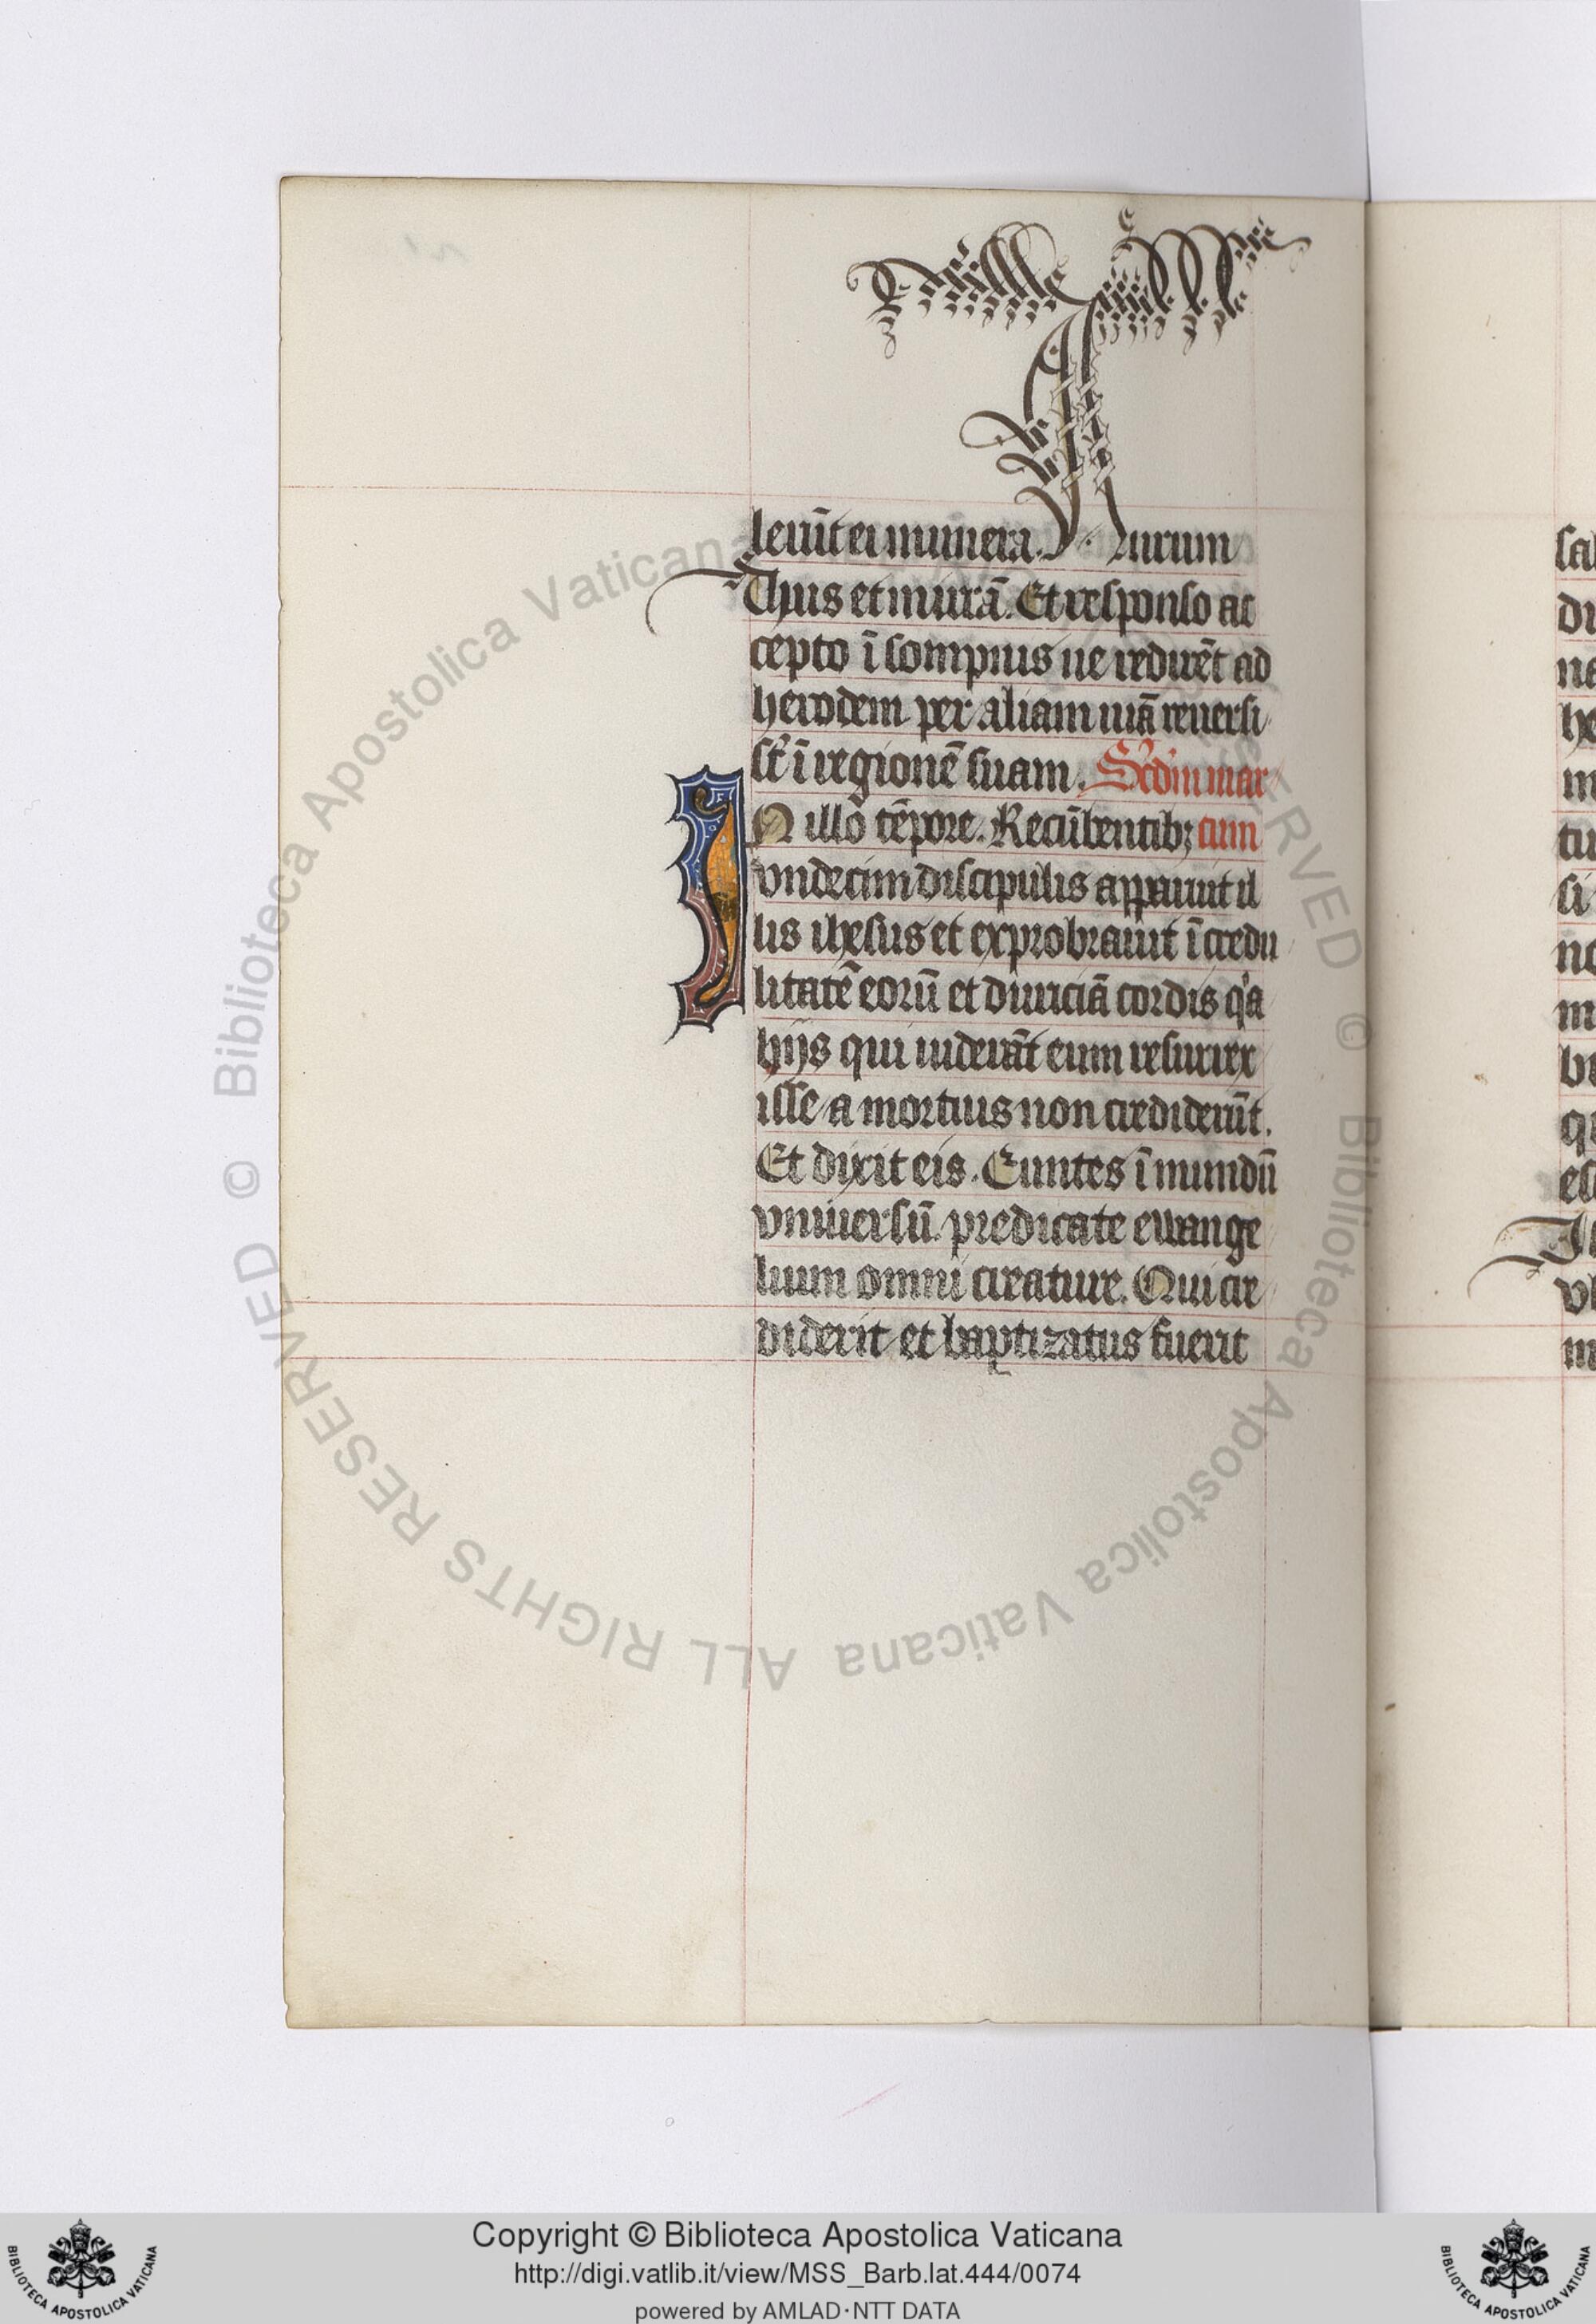 leru̅t ei munera. Aurum
Thus et mirra̅. Et responso ac
cepto i̅ sompnis ne redire̅t ad
herodem per aliam uia̅ reuersi
st̅ i̅ regione̅ suam. Scd'm mar
IN illo te̅pore. Recu̅bentibꝫ cum
vndecim discipulis apparuit il
lis ihesus et exprobrauit i̅credu
litate̅ eoru̅ et duricia̅ cordis q'a
hijs qui uidera̅t eum resurrex
isse a mortuis non credideru̅t.
Et dixit eis. Euntes i̅ mundu̅
vniuersu̅. predicate ewange
lium omni creature. Qui cre
diderit et baptizatus fuerit
© Biblioteca Apostolica Vaticana ALL RIGHTS RESERVED © Biblioteca Apostolica Vaticana ALL RIGHTS RESERVED
Copyright © Biblioteca Apostolica Vaticana
http://digi.vatlib.it/view/MSS_Barb.lat.444/0074
powered by AMLAD·NTT DATA
BIBLIOTECA APOSTOLICA VATICANA
BIBLIOTECA APOSTOLICA VATICANA